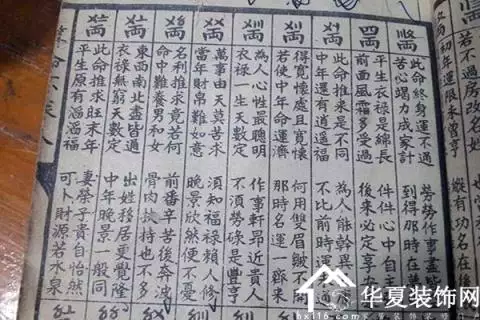 初年運限未曾亨
若不過房改名姓
縱有功名在後
此命終身運不通 勞勞作事盡
苦心竭力成家計 到得那時在
四両
平生衣祿是綿長 件件心中自
前面風霜多受過 後來必定享
此命推來是不同 為人能幹異
中年還有逍遙福 不比前時運
得寬懷處且寬懷 何用雙眉皺不開
若使中年命運濟 那時名運一齊來
為人心性最聰明 作事軒昂近貴人
衣祿一生天數定 不須勞碌是豐亨
萬事由天莫苦求 須知福祿賴人修
當年財帛難如意 晚景欣然便不憂
名利推求竟若何 前番辛苦後奔波
命中難養男和女 骨肉扶持也不多
東西南北盡皆通 出姓移居更覺隆
衣祿無窮天數定 中年晚景一般同
此命推求旺末年 妻榮子貴自怡然
平生原有滔滔福 可卜財源若水泉
华夏装饰网